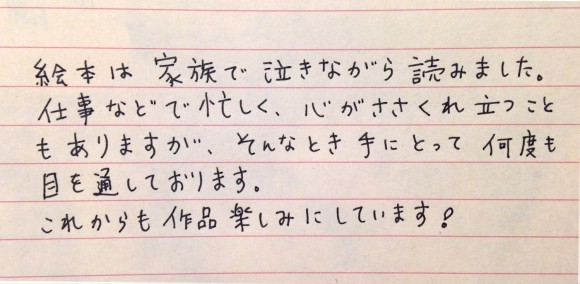 絵本は家族で泣きながら読みました。
仕事などで忙しく、心がささくれ立つこと
もありますが、そんなとき手にとって何度も
目を通しております。
これからも作品楽しみにしています!